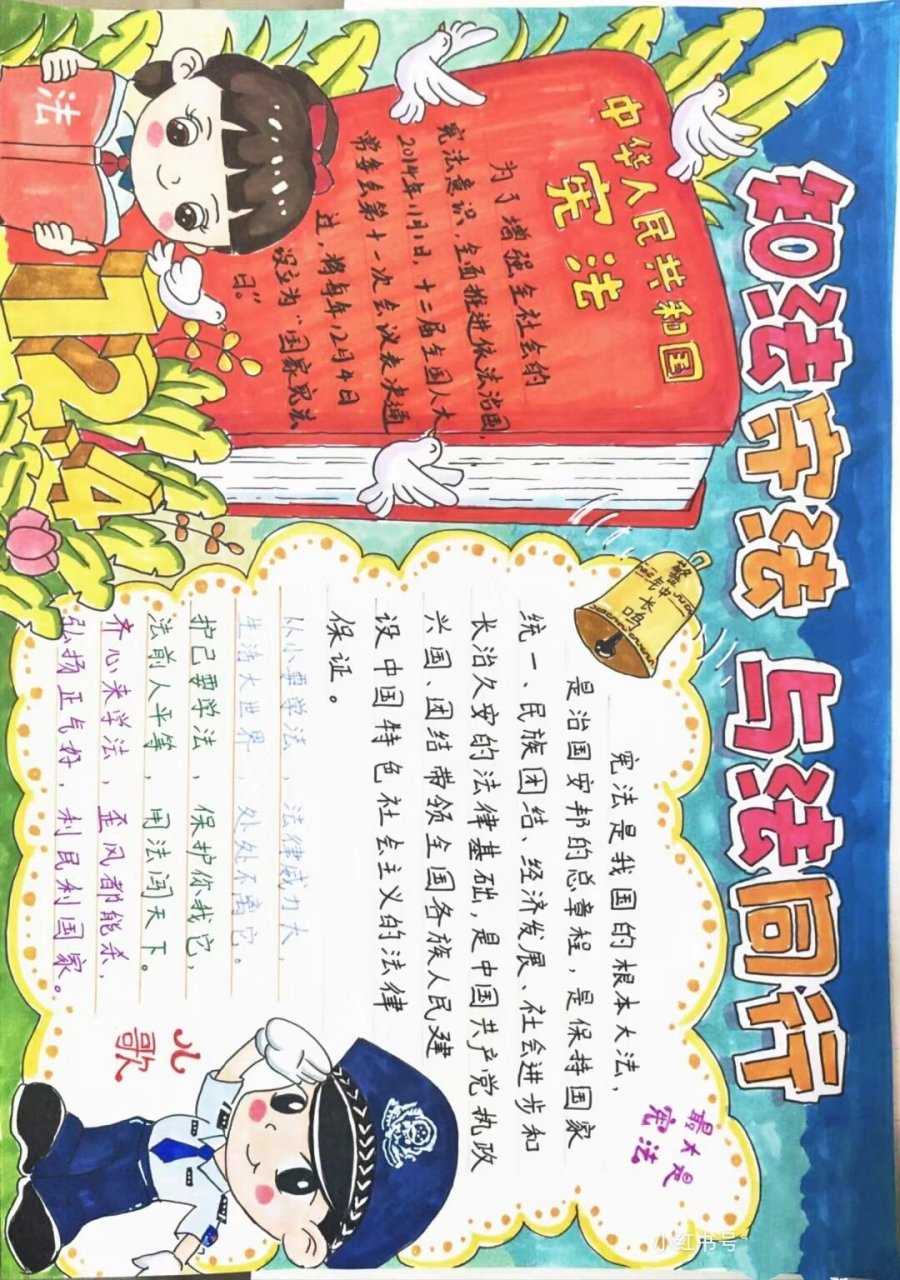 知法守法 与法同行
中华人民共和国
宪法
为了增强全社会的
宪法意识,全面推进依法治国,
2014年11月1日,十二届全国人大
常委会第十一次会议表决通
过,将每年12月4日
设立为“国家宪法
日”。
法
12.4
警钟长鸣
宪法是我国的根本大法,
是治国安邦的总章程,是保持国家
统一、民族团结、经济发展、社会进步和
长治久安的法律基础,是中国共产党执政
兴国、团结带领全国各族人民建
设中国特色社会主义的法律
保证。
最大是
宪法
儿歌
从小要学法,法律威力大,
生活大世界,处处不离它。
护己要学法,保护你我它,
法前人平等,用法闯天下。
齐心来学法,歪风都能杀,
弘扬正气好,利民利国家。
小红书号